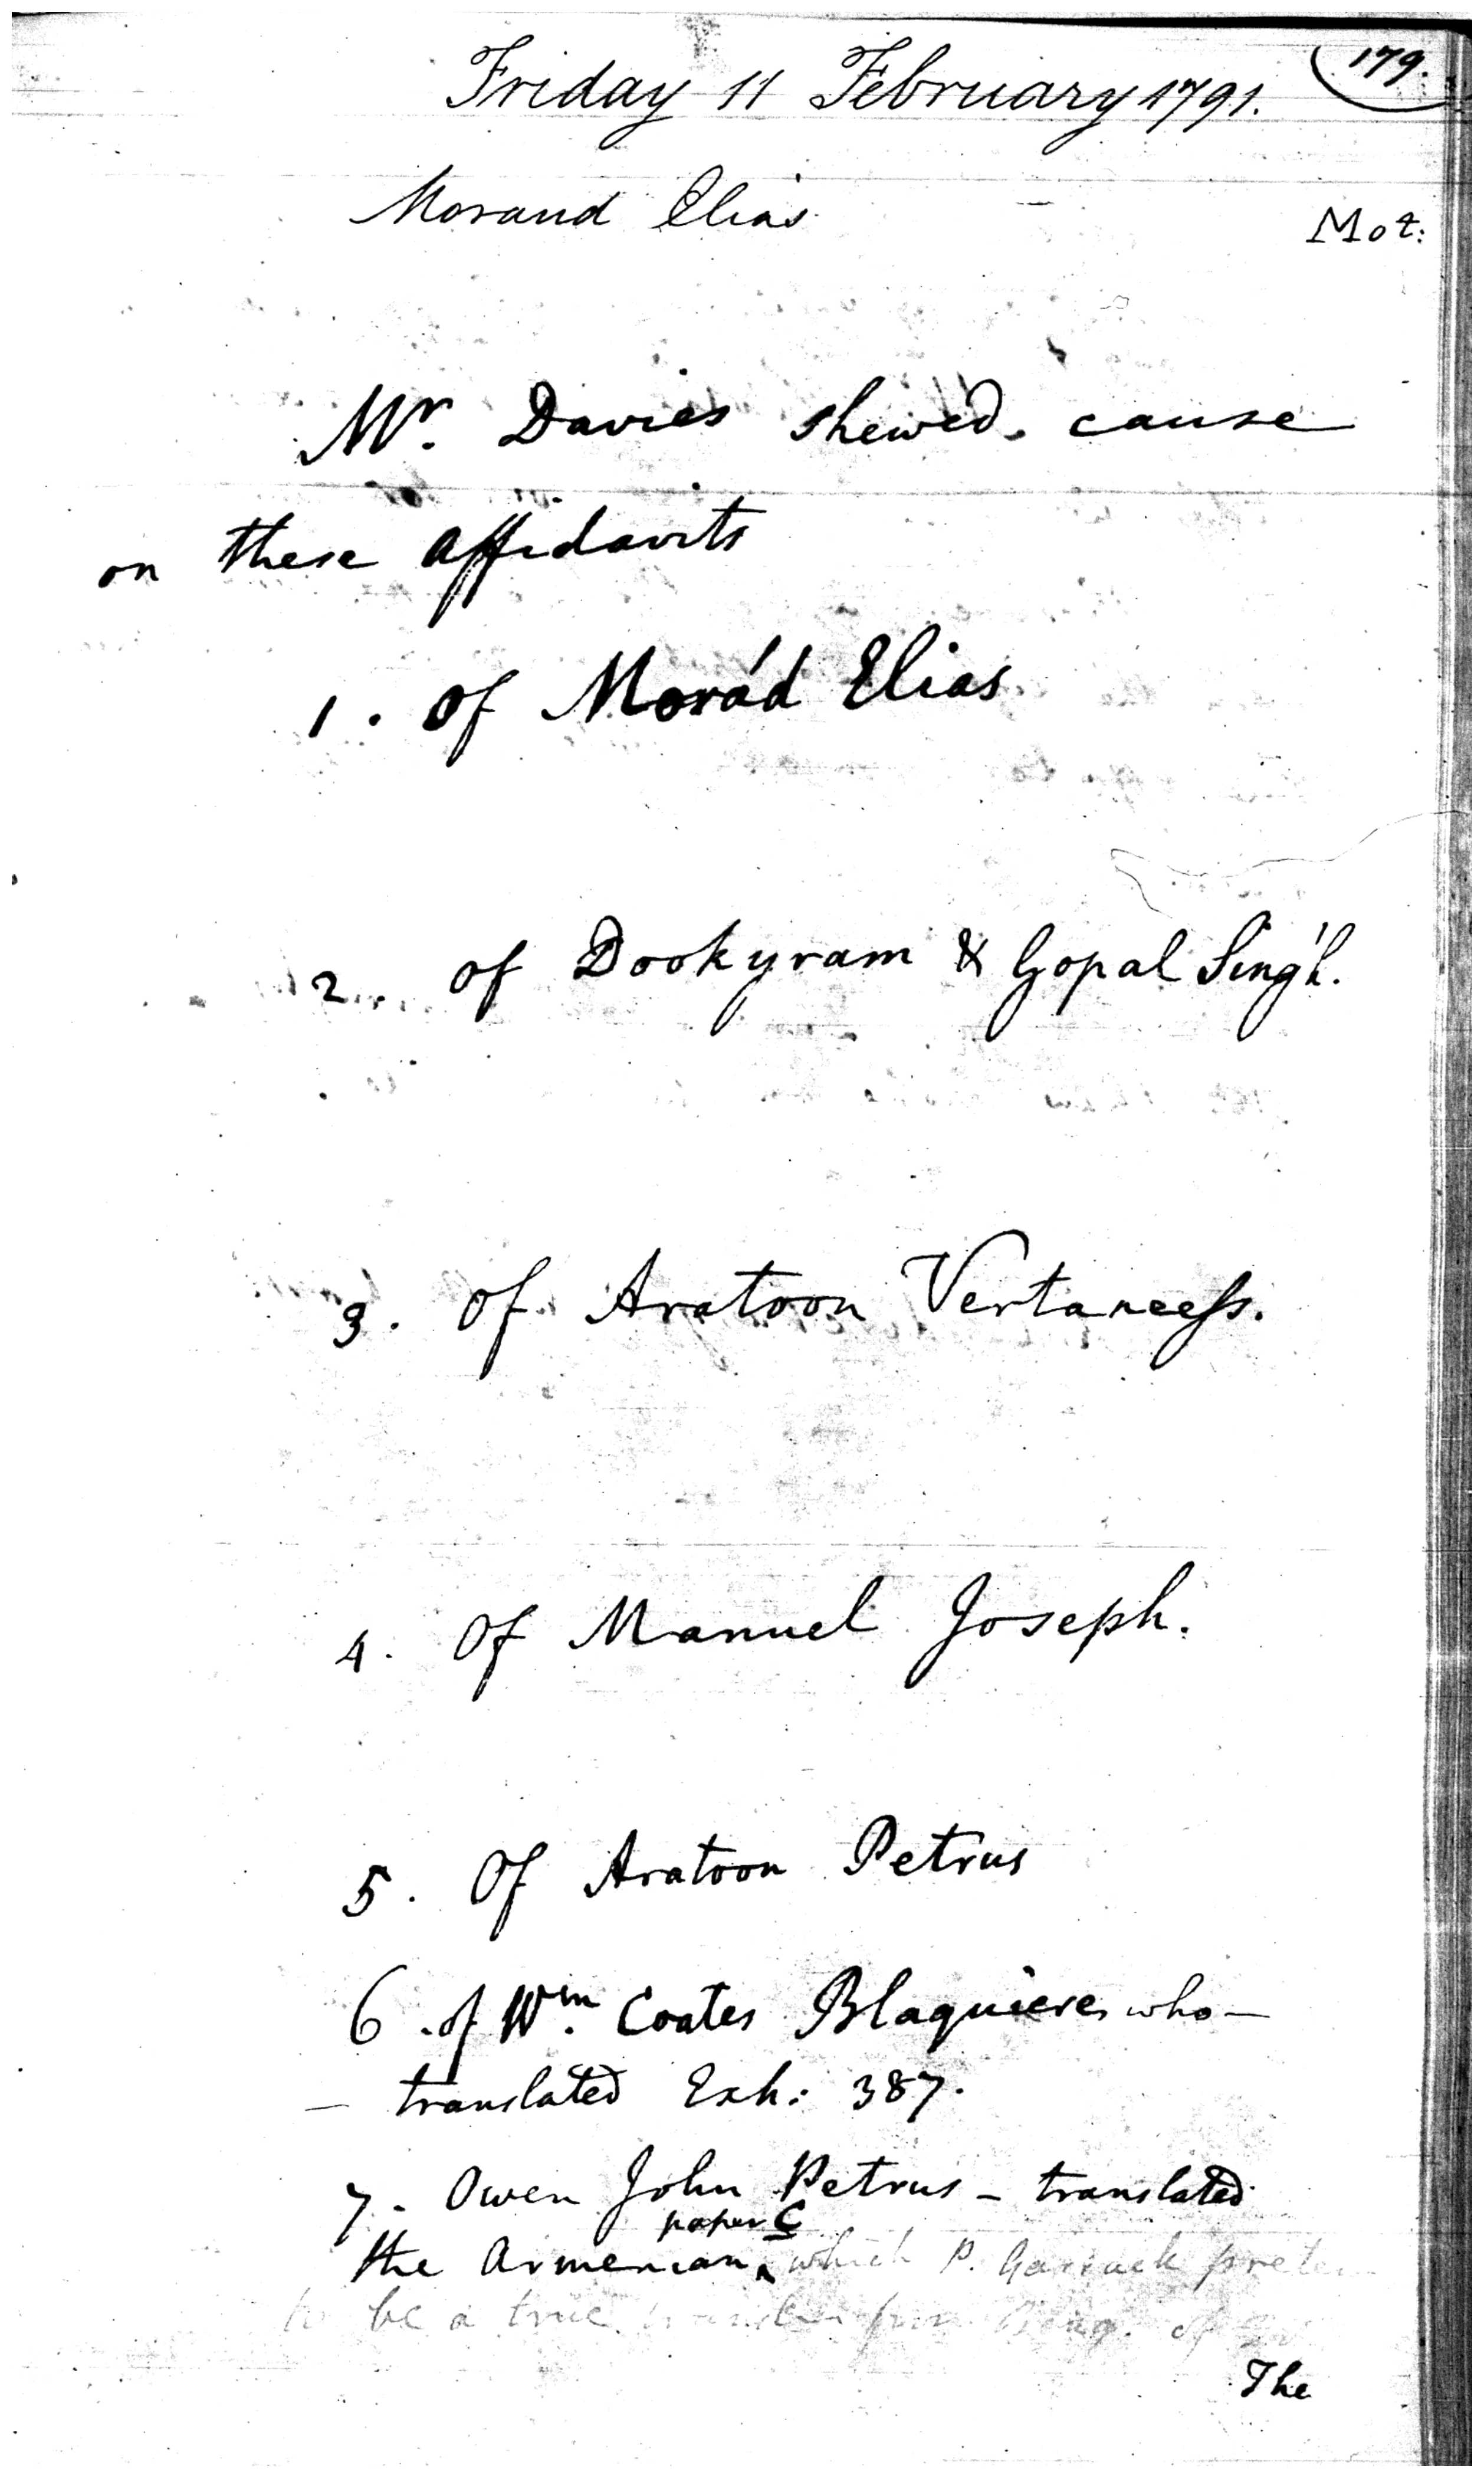 179.
Friday 11 February 1791.
Morand Elias Mot:
Mr. Davies shewed cause
on these affidavits
1. of Morád Elias
2. of Dookyram & Gopal Singh.
3. Of Aratoon Vertaness.
4. Of Manuel Joseph.
5. Of Aratoon Petrus
6. of Wm. Coates Blaquiere who —
— translated Exh: 387.
7. Owen John Petrus – translated
paper C
the Armenian which P.
to be a true of
The